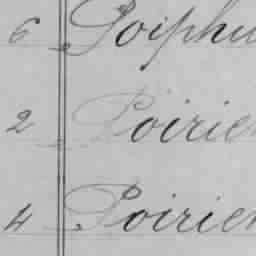 6 Poiphu
2 Poirier
4 Poirier